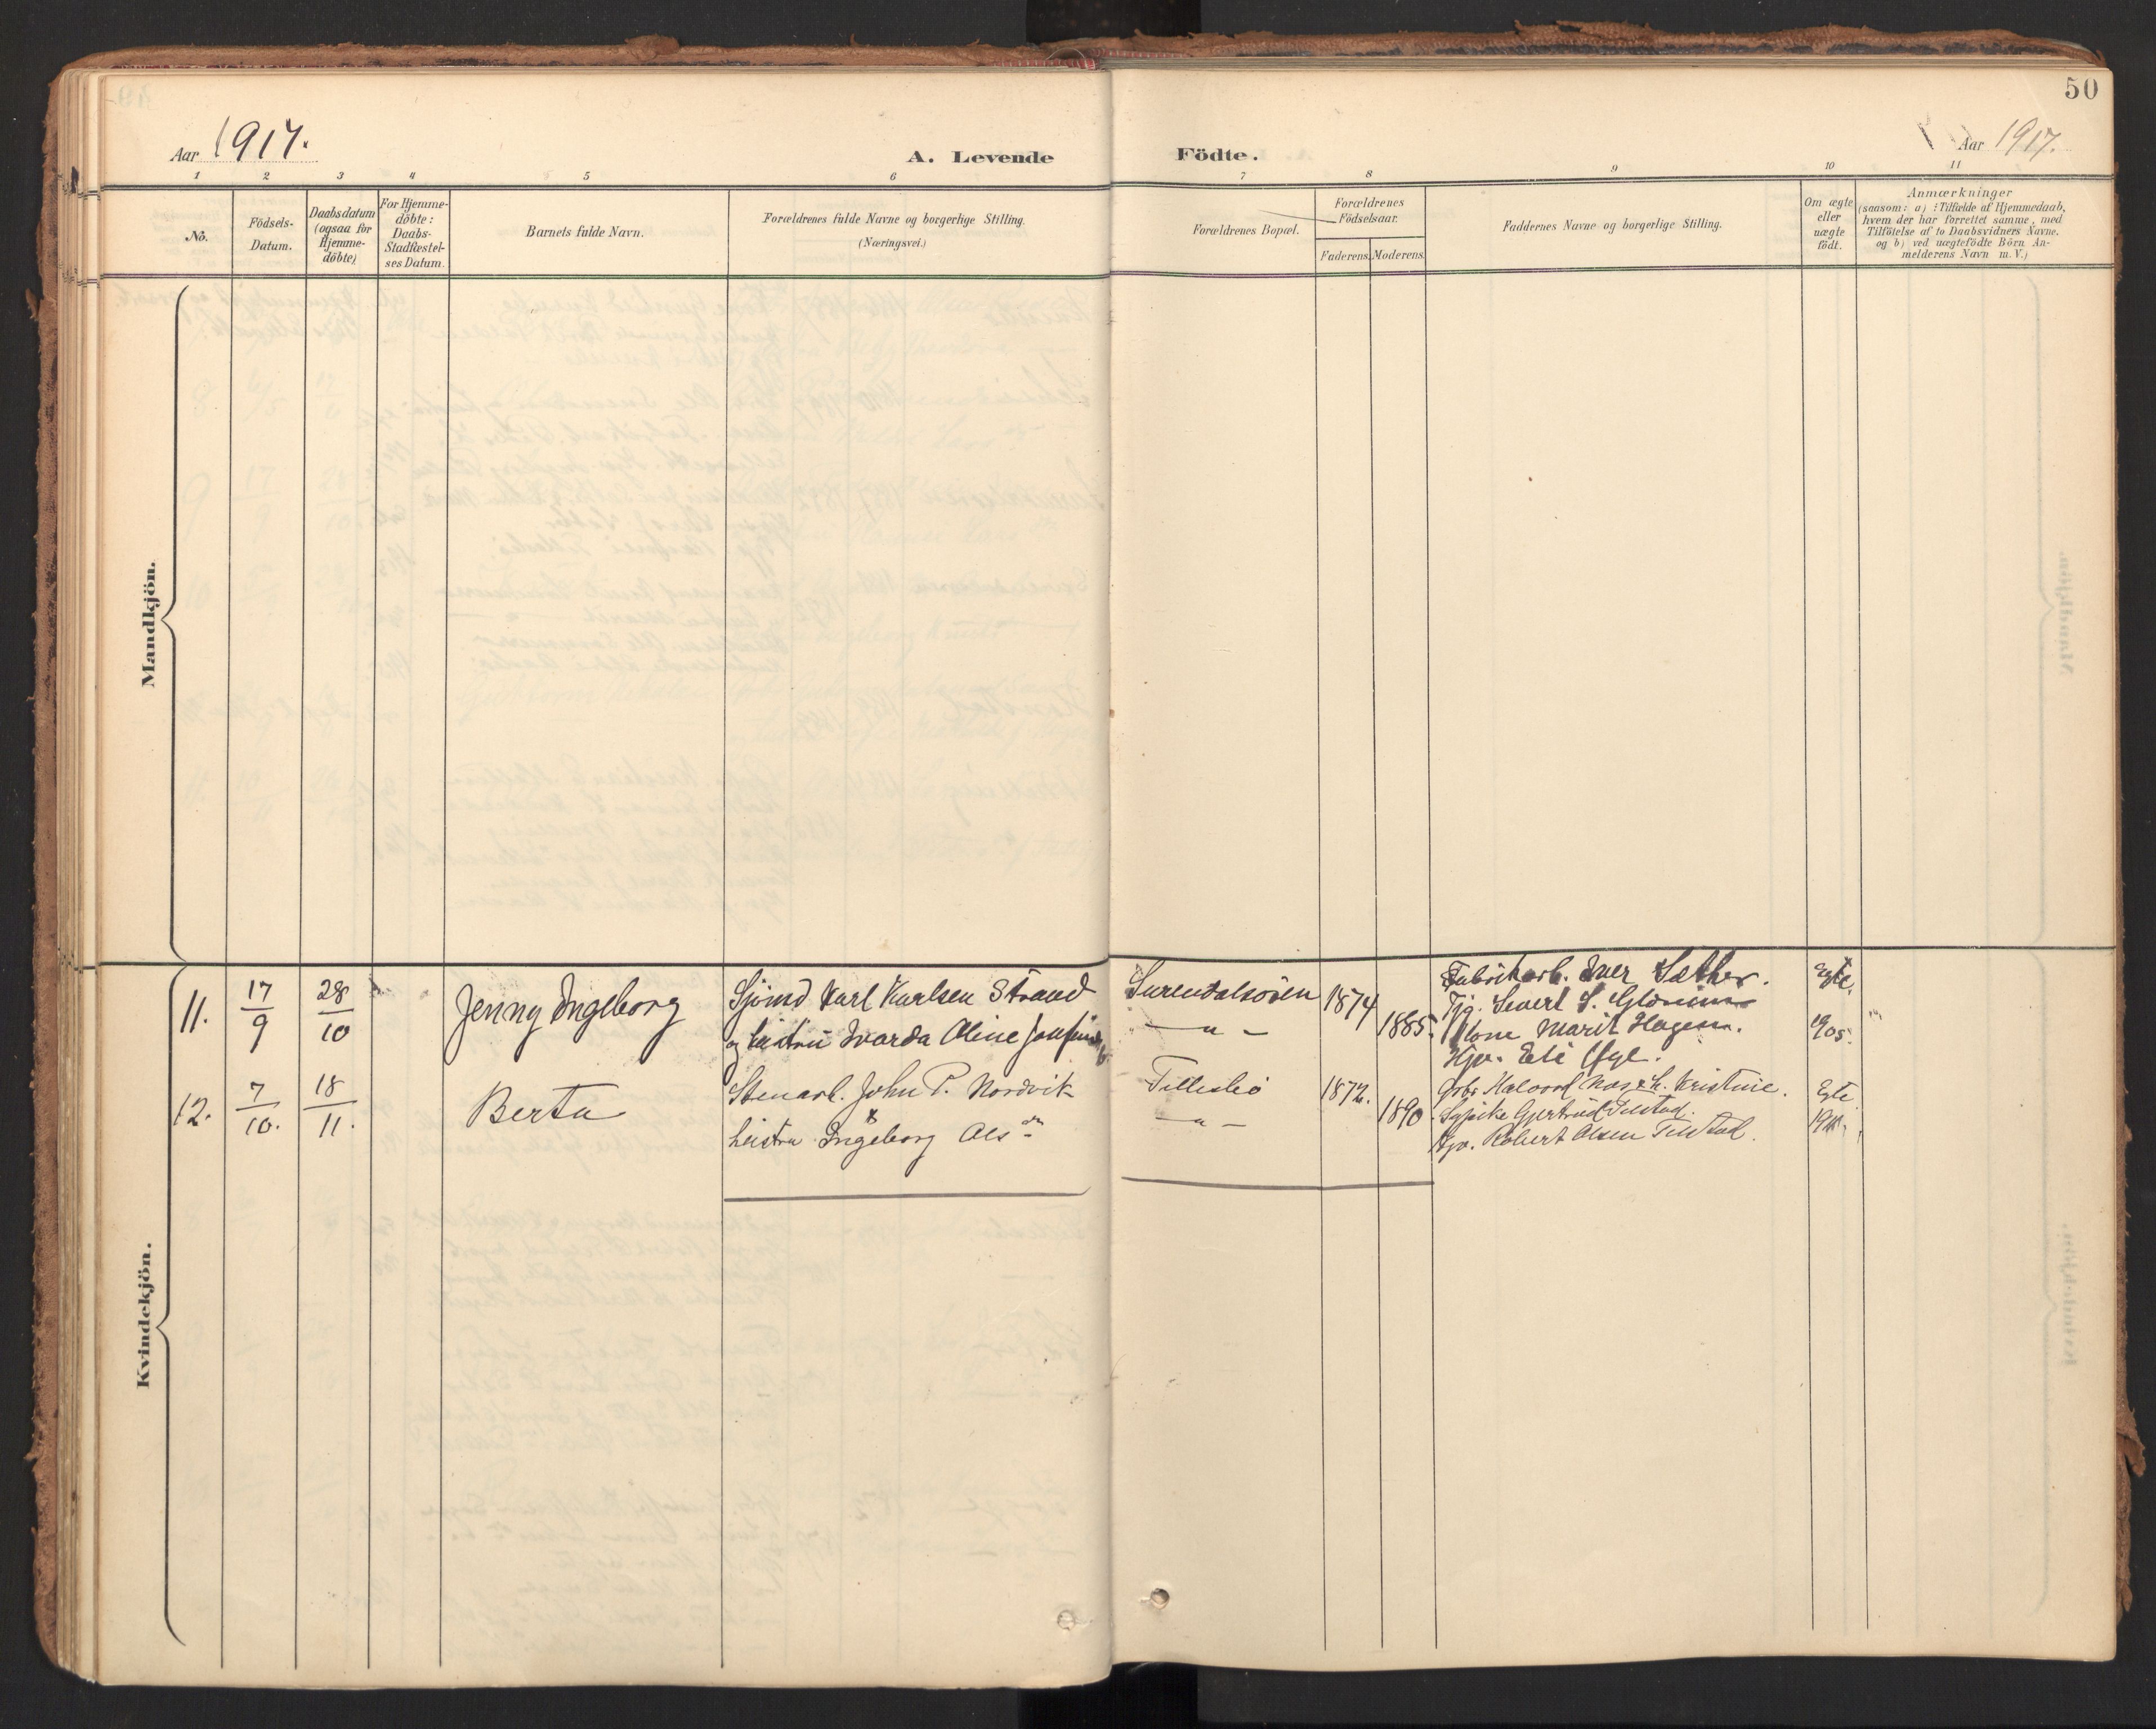 50
Aar 1917.
A. Levende Födte.
Aar 1917.
1 2 3 4 5 6 7 8 9 10 11
No.
Födsels-
Datum.
Daabsdatum
(ogsaa for
Hjemme-
döbte)
For Hjemme-
döbte:
Daabs-
Stadfæstel-
ses Datum.
Barnets fulde Navn.
Forældrenes fulde Navne og borgerlige Stilling.
(Næringsvei.)
Forældrenes Bopæl.
Forældrenes
Födselsaar.
Faderens. Moderens.
Faddernes Navne og borgerlige Stilling.
Om ægte
eller
uægte
födt.
Anmærkninger
(saasom: a) i Tilfælde af Hjemmedaab,
hvem der har forrettet samme, med
Tilföielse af to Daabsvidners Navne.
og b) ved uægtefödte Börn An-
melderens Navn m. V.)
Mandkjön.
Kvindekjön.
11. 17/9 28/10 Jenny Ingeborg
Sjömd Karl Karlsen Strand
og hustru Ivarda Oline
Surendalsören
— " —
1874
1885.
Fabrikarb. Iver Sæther.
Tjg. Severt S.
Kone Marit Hagen.
Hjv. Eli Øye.
Egte.
1905.
12. 7/10. 18/11. Berta
Stenarb. John P. Nordvik
hustru Ingeborg Olsdr
Tellesbö
— " —
1872.
1890
Gbr. Halvord h. Kristine.
Sypike Gjertrud Telstad.
Robert Olsen Telstad.
Egte